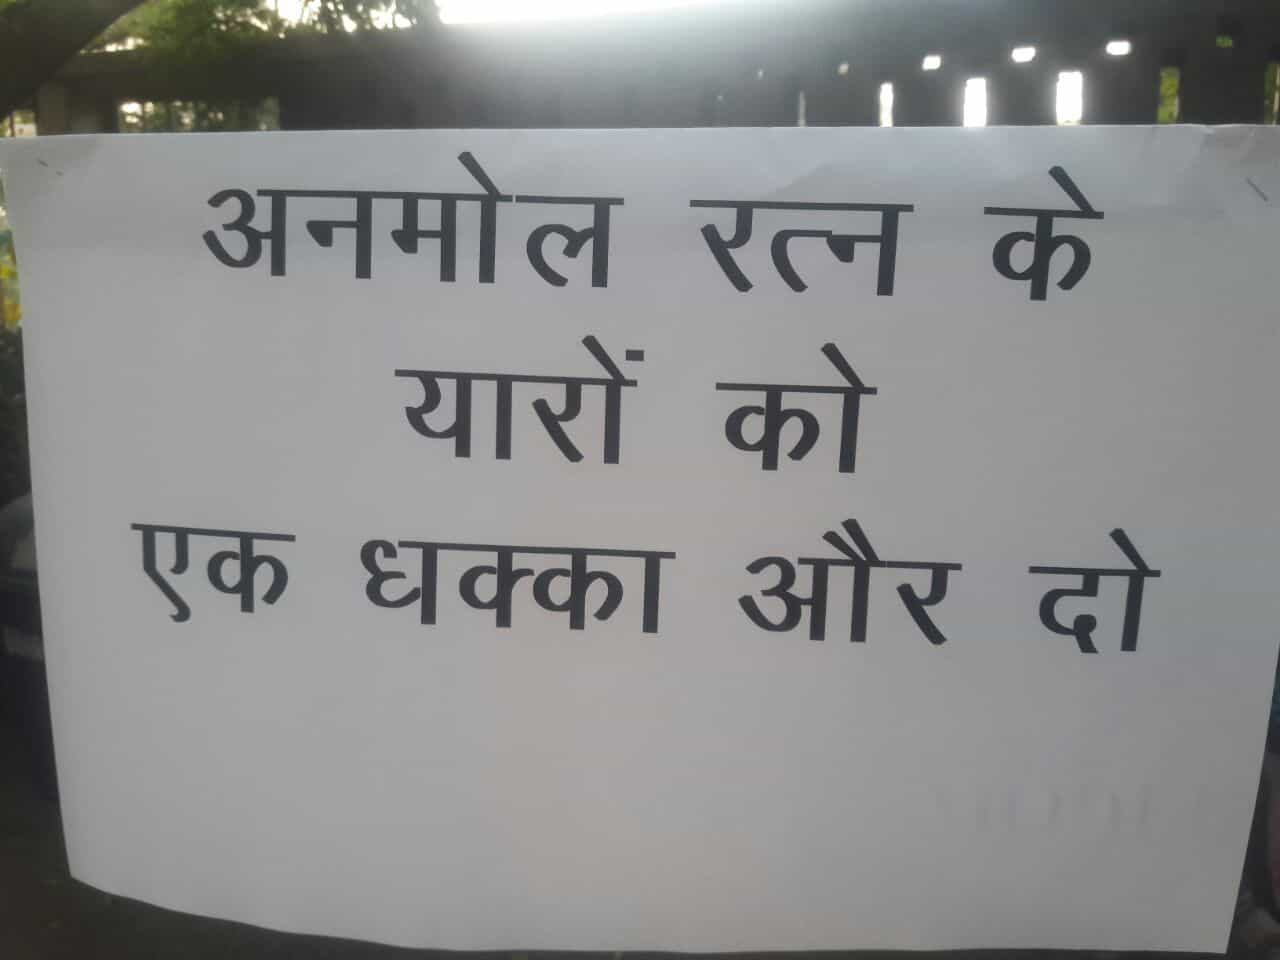 अनमोल रत्न के
यारों को
एक धक्का और दो